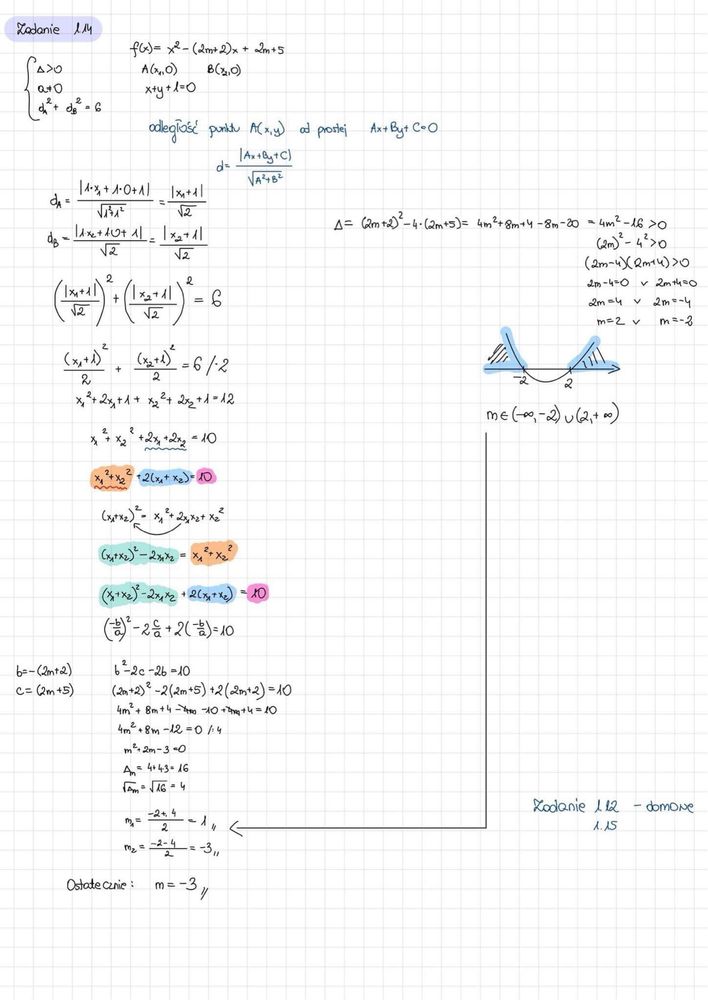 Zadanie 1.14
f(x) = x² - (2m+2)x + 2m+5
Δ>0
A(x₁,0) B(x₂,0)
a≠0
x+y+1=0
d_A² + d_B² = 6
odległość punktu A(x,y) od prostej Ax+By+C=0
d = |Ax+By+C| / √(A²+B²)
d_A = |1·x₁+1·0+1| / √(1²+1²) = |x₁+1| / √2
d_B = |1·x₂+1·0+1| / √2 = |x₂+1| / √2
(|x₁+1| / √2)² + (|x₂+1| / √2)² = 6
(x₁+1)² / 2 + (x₂+1)² / 2 = 6 /·2
x₁²+2x₁+1 + x₂²+2x₂+1 = 12
x₁² + x₂² + 2x₁+2x₂ = 10
x₁²+x₂² + 2(x₁+x₂) = 10
(x₁+x₂)² = x₁²+2x₁x₂+x₂²
(x₁+x₂)² - 2x₁x₂ = x₁²+x₂²
(x₁+x₂)² - 2x₁x₂ + 2(x₁+x₂) = 10
(-b/a)² - 2 c/a + 2(-b/a) = 10
b=-(2m+2) b²-2c-2b=10
c=(2m+5) (2m+2)² - 2(2m+5) + 2(2m+2) = 10
4m² + 8m+4 -4m -10 +4m+4 = 10
4m² + 8m -12 = 0 /:4
m²+2m-3=0
Δm = 4+4·3=16
√Δm = √16 = 4
m₁ = (-2+4) / 2 = 1
m₂ = (-2-4) / 2 = -3
Ostatecznie: m = -3
Δ = (2m+2)² - 4·(2m+5) = 4m²+8m+4-8m-20 = 4m²-16 >0
(2m)² - 4² >0
(2m-4)(2m+4)>0
2m-4=0 ∨ 2m+4=0
2m=4 ∨ 2m=-4
m=2 ∨ m=-2
-2 2
m∈(-∞,-2)∪(2,+∞)
Zadanie 1.12 - domowe
1.15